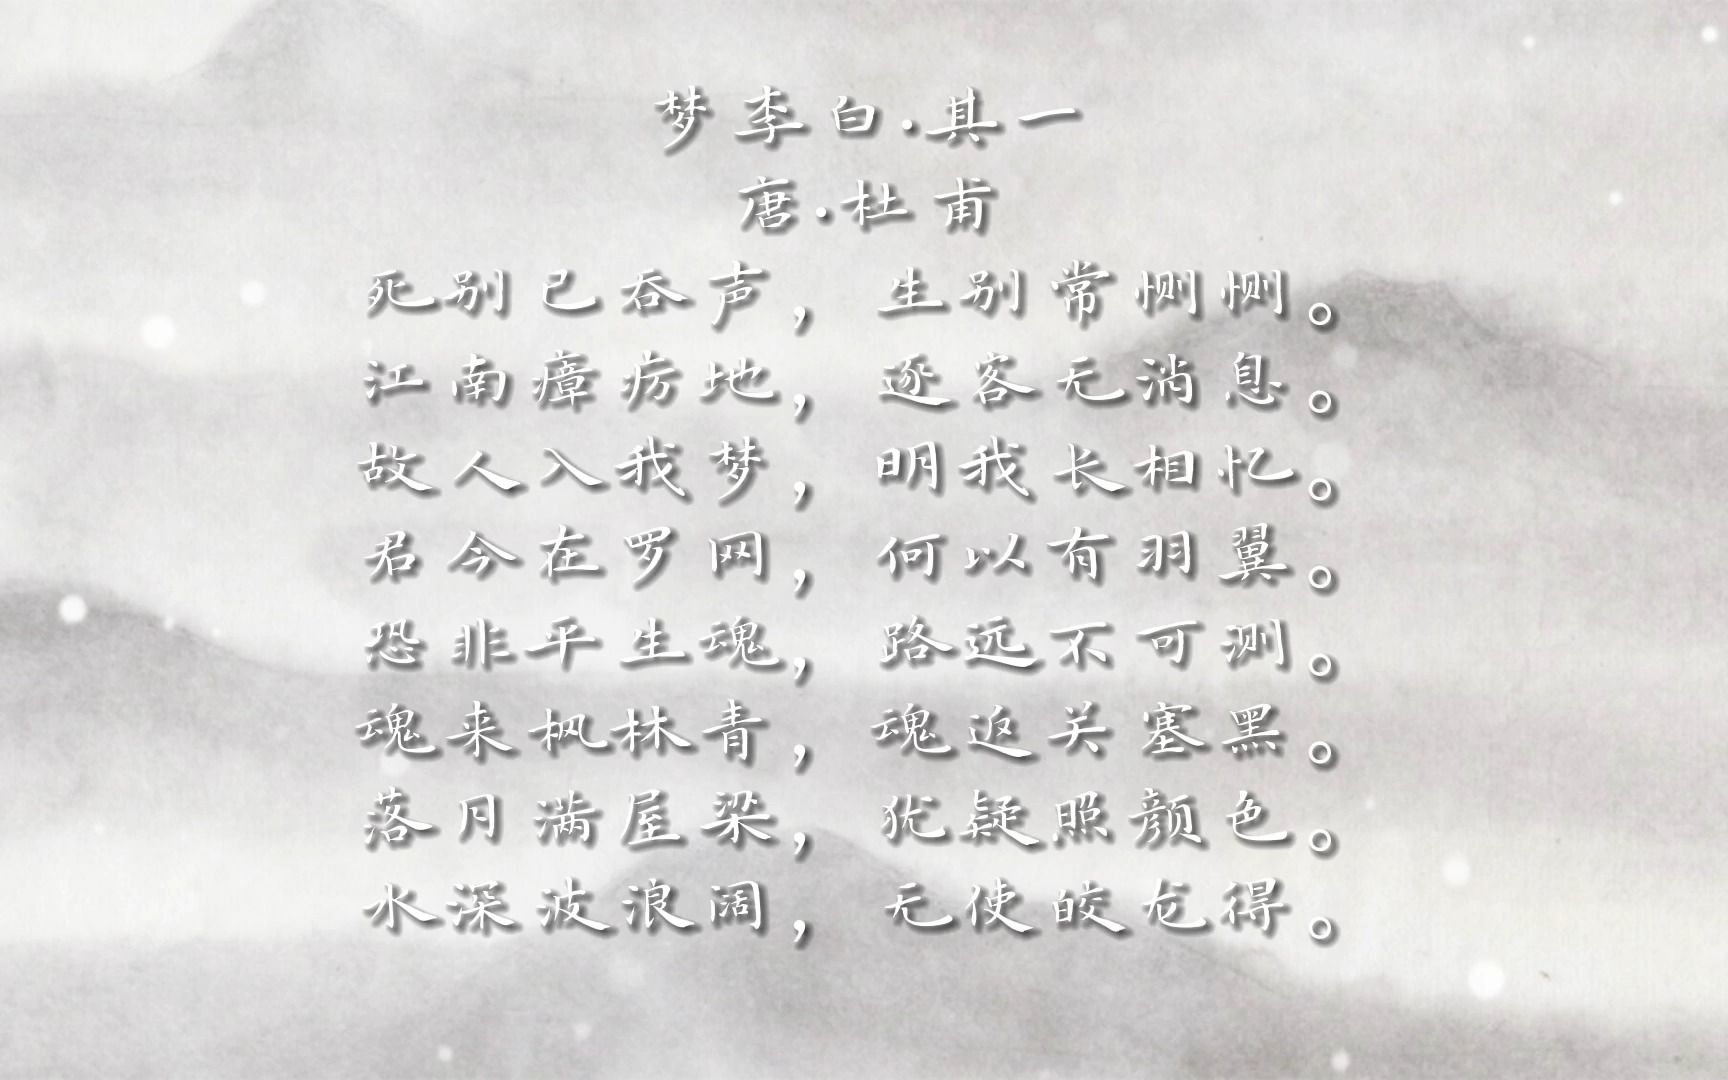 梦李白·其一
唐·杜甫
死别已吞声，生别常恻恻。
江南瘴疠地，逐客无消息。
故人入我梦，明我长相忆。
君今在罗网，何以有羽翼。
恐非平生魂，路远不可测。
魂来枫林青，魂返关塞黑。
落月满屋梁，犹疑照颜色。
水深波浪阔，无使皎龙得。